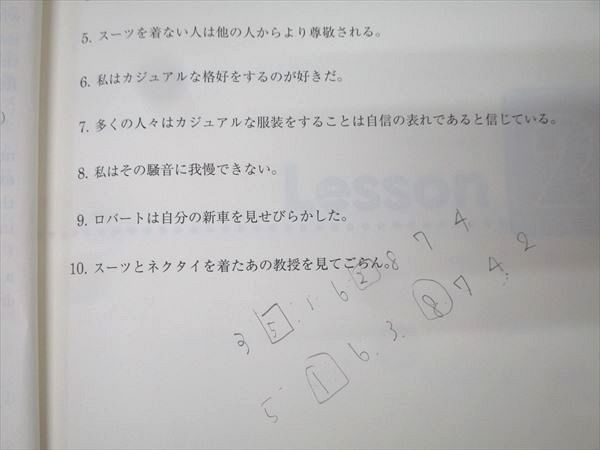 5. スーツを着ない人は他の人からより尊敬される。
6. 私はカジュアルな格好をするのが好きだ。
7. 多くの人々はカジュアルな服装をすることは自信の表れであると信じている。
8. 私はその騒音に我慢できない。
Lesson
9. ロバートは自分の新車を見せびらかした。
10. スーツとネクタイを着たあの教授を見てごらん。
3 5 1 6 2 8 7 4
5 1 6. 3. 8 7 4 2